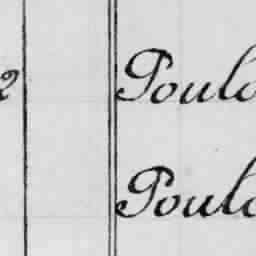 2 Poulo
Poulo